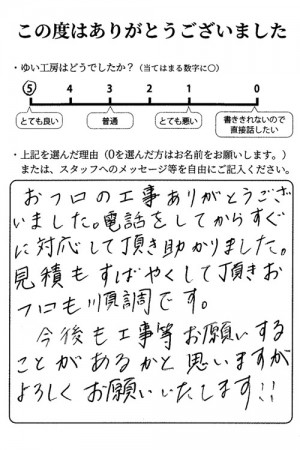 この度はありがとうございました
・ゆい工房はどうでしたか?(当てはまる数字に○)
5 4 3 2 1 0
とても良い 普通 とても悪い 書ききれないので
直接話したい
・上記を選んだ理由(0を選んだ方はお名前をお願いします。)
または、スタッフへのメッセージ等を自由にご記入ください。
おフロの工事ありがとうござ
いました。電話をしてからすぐ
に対応して頂き助かりました。
見積もすばやくして頂きお
フロも順調です。
今後も工事等お願いする
ことがあるかと思いますが
よろしくお願いいたします!!